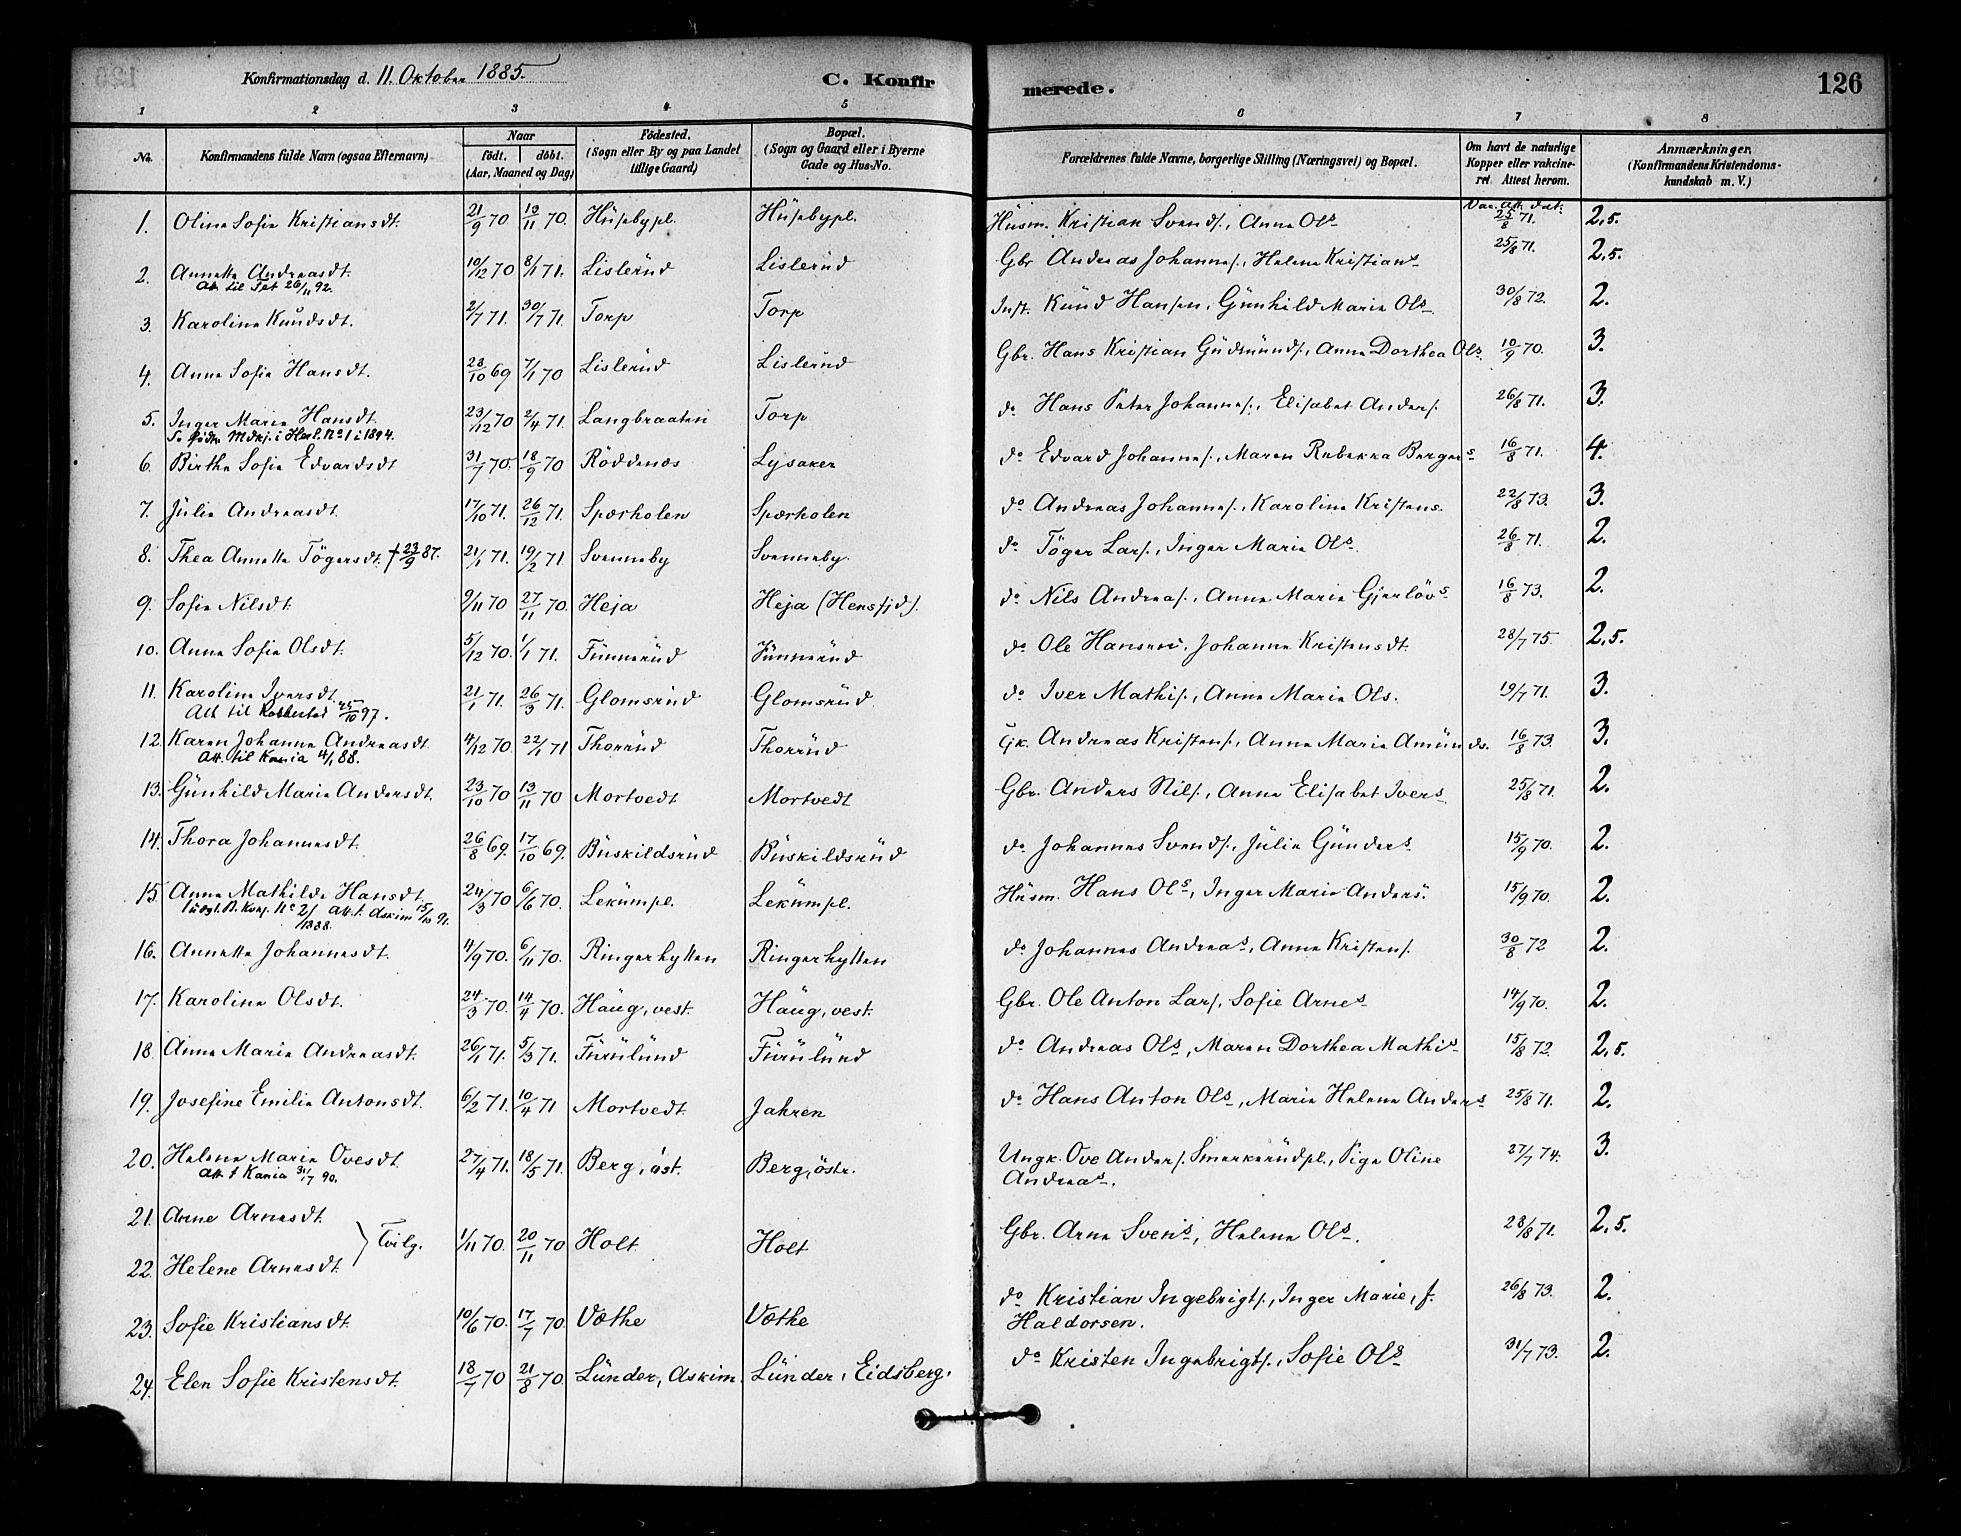 Konfirmationsdag d. 11. Oktober 1885.
C. Konfir
merede.
126
1 2 3 4 5 6 7 8
No. Konfirmandens fulde Navn (ogsaa Efternavn) Naar født. døbt. (Aar, Maaned og Dag) Fødested. (Sogn eller By og paa Landet tillige Gaard) Bopæl. (Sogn og Gaard eller i Byerne Gade og Hus-No. Forældrenes fulde Navne, borgerlige Stilling (Næringsvei) og Bopæl. Om havt de naturlige Kopper eller vakcineret. Attest herom. Anmærkninger. (Konfirmandens Kristendomskundskab m. V.)
Vac. att. dat.
1. Olina Sofie Kristiansdt. 21/9 70 13/11 70. Hüsebypl. Hüsebypl. Hüsm. Kristian Svends., Anna Ols 25/8 71. 2,5.
2. Annette Andreasdt. 10/12 70 8/1 71. Lislerüd Lislerüd Gbr Andreas Johannes., Helene Kristians 25/8 71. 2,5.
Att. til Tet 26/11 92.
3. Karoline Knüdsdt. 2/7 71. 30/7 71. Torp Torp Inst. Knüd Hansen, Günhild Marie Ols 30/8 72. 2.
4. Anna Sofie Hansdt. 28/10 69 7/1 70 Lislerüd Lislerüd Gbr. Hans Kristian Güdmünds., Anna Dorthea Ols. 10/9 70. 3.
5. Inger Marie Hansdt. 23/12 70 2/4 71. Langbraaten Torp do Hans Peter Johannes., Elisabet Anders. 26/8 71. 3.
6. Birthe Sofie Edvardsdt 31/7 70. 18/9 70 Röddenæs Lysaker do Edvard Johannes., Maren Rebekka Bergers 16/8 71. 4.
7. Jülie Andreasdt. 17/10 71. 26/12 71. Spærholen Spærholen do Andreas Johannes., Karoline Kristens. 22/8 73. 3.
8. Thea Annette Tögersdt. † 23/9 87. 21/1 71. 19/2 71 Svenneby Svenneby. do Töger Lars., Inger Marie Ols. 26/8 71. 2.
9. Sofie Nilsdt. 9/11 70 27/11 70. Heja Heja (Hensfjd). do Nils Andreas., Anna Marie Gjerlövs 16/8 73. 2.
10. Anna Sofie Olsdt. 5/12 70. 1/1 71. Fünnerüd Fünnerüd do Ole Hansen. Johanne Kristensdt. 28/7 75. 2,5.
11. Karoline Iversdt. 21/1 71. 26/3 71. Glomsrüd Glomsrüd do Iver Mathis., Anna Marie Ols. 19/7 71. 3.
Att til Rakkestad 25/10 97.
12. Karen Johanne Andreasdt. 4/12 70. 22/1 71 Thorrüd Thorrüd Gk. Andreas Kristens., Anna Marie Amünds. 16/8 73. 3.
Att. til Kania 4/1 88.
13. Günhild Marie Andersdt. 23/10 70 13/11 70 Mortvedt Mortvedt Gbr. Anders Nils., Anne Elisabet Ivers 25/8 71. 2.
14. Thora Johannesdt. 26/8 69. 17/10 69. Büskildsrüd Büskildsrüd do Johannes Svends., Jülie Günders 15/9 70. 2.
15. Anna Mathilde Hansdt. 24/3 70 6/6 70. Leküмpl. Leküмpl. Hüsm. Hans Ols, Inger Marie Anders. 15/9 70. 2.
16. Annette Johannesdt. 4/9 70. 6/11 70. Ringerhytten Ringerhytten do Johannes Andreas, Anna Kristens. 30/8 72 2.
17. Karoline Olsdt. 24/3 70. 14/4 70. Haüg, vest. Haüg, vest. Gbr. Ole Anton Lars., Sofie Arnes 14/9 70. 2.
18. Anna Marie Andreasdt. 26/1 71. 5/3 71. Fürülünd Fürülünd do Andreas Ols, Maren Dorthea Mathis 15/8 72. 2,5.
19. Josefine Emilie Antonsdt. 6/2 71. 10/4 71 Mortvedt. Jahren do Hans Anton Ols, Marie Helene Anders 25/8 71. 2.
20. Helene Marie Ovesdt. 27/4 71. 18/5 71. Berg, öst. Berg, östr. Ungk. Ove Anders. Smerkerüdpl., Pige Oline 27/7 74. 3.
Att. t Kania 31/7 90. Andreas.
21. Arne Arnesdt.
} Tvilg. 1/11 70. 20/11 70 Holt Holt Gbr. Arne Svens, Helene Ols. 28/8 71. 2,5.
22. Helene Arnesdt.
23. Sofie Kristiansdt. 10/6 70. 17/7 70. Væthe Væthe do Kristian Ingebrigts., Inger Marie, f. 26/8 73. 2.
Haldorsen.
24. Elen Sofie Kristensdt. 18/7 70 21/8 70 Lünder, Askim. Lünder, Eidsberg. do Kristen Ingebrigts., Sofie Ols 31/7 73. 2.